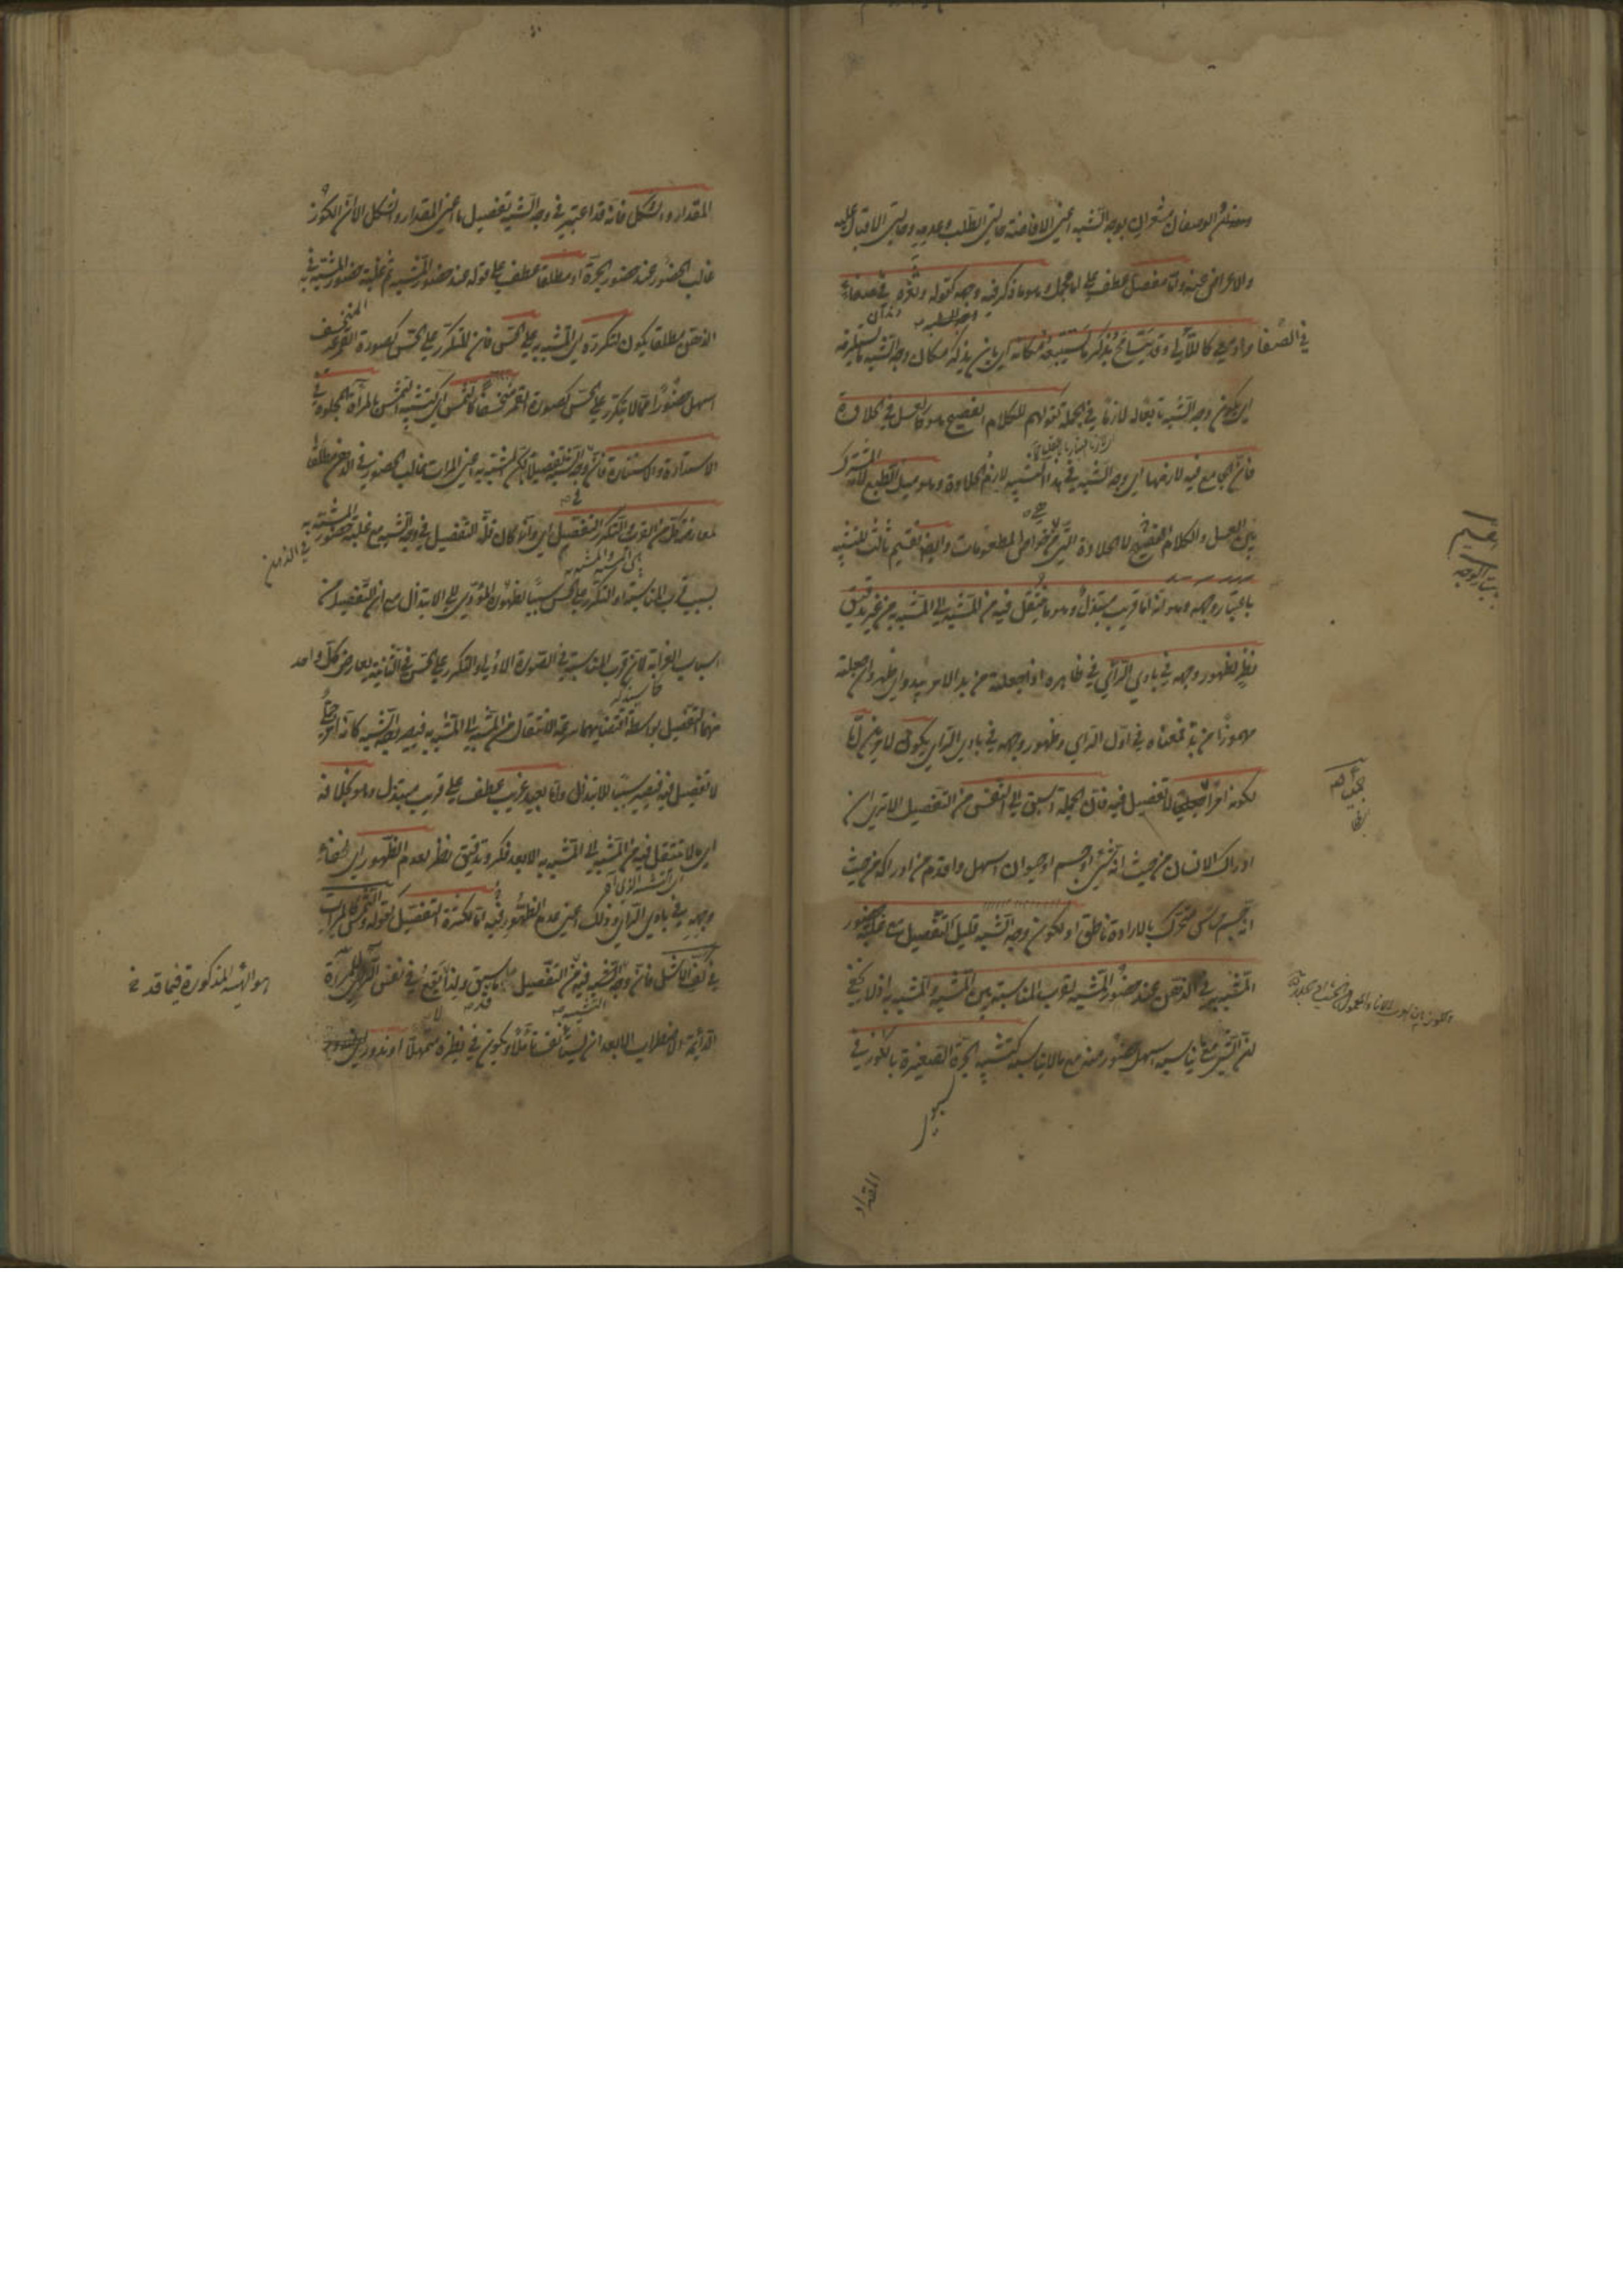 وهذان الوصفان مشعران بوجه الشبه اعني الافاضة حالتي الطلب وعدمه وحالتي الاقبال عليه
والاعراض عنه واما مفصل عطف على اما مجمل وهو ما ذكر فيه وجهه كقوله وثغره في صفاء
وادمعي كاللآلي وقد يتسامح بذكر ما يستتبعه مكانه اي بان يذكر مكان وجه الشبه ما يستلزمه
اي يكون وجه الشبه تابعا له لازما في الجملة كقولهم للكلام الفصيح هو كالعسل في الحلاوة
فان الجامع فيه لازمها اي وجه الشبه في هذا التشبيه لازم الحلاوة وهو ميل الطبع لانه المشترك
بين العسل والكلام الفصيح لا الحلاوة التي هي من خواص المطعومات وايضا تقسيم ثالث للتشبيه
باعتبار وجهه وهو انه اما قريب مبتذل وهو ما ينتقل فيه من المشبه الى المشبه به من غير تدقيق
نظر لظهور وجهه في بادي الرأي في ظاهره اذا جعلته من بدا الامر يبدو اي ظهر وان جعلته
مهموزا من بدأ فمعناه في اول الرأي وظهور وجهه في بادي الرأي يكون لامرين اما
لكونه امرا جمليا لا تفصيل فيه فان الجملة اسبق الى النفس من التفصيل الا ترى ان
ادراك الانسان من حيث انه شيء او جسم او حيوان اسهل واقدم من ادراكه من حيث
انه جسم حساس متحرك بالارادة ناطق او لكون وجه الشبه قليل التفصيل مع غلبة حضور
المشبه به في الذهن عند حضور المشبه لقرب المناسبة بين المشبه والمشبه به اذ لا يخفى
ان الشيء مع ما يناسبه اسهل حضورا منه مع ما لا يناسبه كتشبيه الجرة الصغيرة بالكوز في
المقدار
في الصفا
المقدار والشكل فانه قد اعتبر في وجه الشبه تفصيل ما اعني المقدار والشكل الا ان الكوز
غالب الحضور عند حضور الجرة او مطلقا عطف على قوله عند حضور المشبه ثم غلبة حضور المشبه به في
الذهن مطلقا يكون لتكرره اي المشبه به على الحس فان المتكرر على الحس كصورة القمر غير المنخسف
اسهل حضورا مما لا يتكرر على الحس كصورة القمر منخسفا كالشمس اي كتشبيه الشمس بالمرآة المجلوة في
الاستدارة والاستنارة فان في وجه الشبه تفصيلا ما لكن المشبه به اعني المرآة غالب الحضور في الذهن مطلقا
لمعارضة كل من القرب والتكرر التفصيل اي وانما كان قلة التفصيل في وجه الشبه مع غلبة حضور المشبه به
في الذهن
بسبب قرب المناسبة او التكرر على الحس سببا لظهوره المؤدي الى الابتذال مع ان التفصيل من
اسباب الغرابة لان قرب المناسبة في الصورة الاولى او التكرر على الحس في الثانية يعارض كل واحد
منهما التفصيل بواسطة اقتضائهما سرعة الانتقال من المشبه الى المشبه به فيصير وجه الشبه كانه امر جملي
لا تفصيل فيه فيصير سببا للابتذال واما بعيد غريب عطف على قريب مبتذل وهو بخلافه
اي ما لا ينتقل فيه من المشبه الى المشبه به الا بعد فكر وتدقيق نظر لعدم الظهور اي لخفاء
وجهه في بادي الرأي وذلك اعني عدم الظهور فيه اما لكثرة التفصيل كقوله والشمس كالمرآة
في كف الاشل فان وجه الشبه فيه من التفصيل ما سبق ولذا لا يقع في نفس الرائي للمرآة
الدائمة الاضطراب الا بعد ان يستأنف تأملا ويكون في نظره متمهلا او ندور
هو الهيئة المذكورة فيما قد